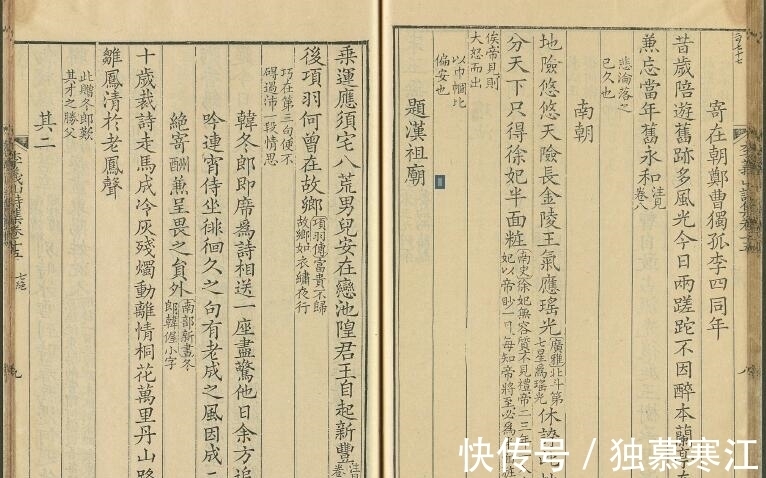 寄在朝鄭曹獨孤李四同年
昔歲陪遊舊跡多風光今日兩蹉跎不因醉本蘭亭在
兼忘當年舊永和注見
卷八
悲淪落之
已久也
南朝
地險悠悠天險長金陵王氣應瑤光廣雅北斗第
七星爲瑤光休誇此地
分天下只得徐妃半面粧南史徐妃無容質不見禮帝二三年
妃以帝眇一目每知帝將至必爲
俟帝見則
大怒而出
以巾幗比
偏安也
題漢祖廟
乘運應須宅八荒男兒安在戀池隍君王自起新豐注見
卷
後項羽何曾在故鄉項羽傳富貴不歸
故鄉如衣繡夜行
巧在第三句便不
礙過沛一段情思
韓冬郎即席爲詩相送一座盡驚他日余方追
吟連宵侍坐徘徊久之句有老成之風因成二
絶寄酬兼呈畏之員外南部新書冬
郎韓偓小字
十歲裁詩走馬成冷灰殘燭動離情桐花萬里丹山路
雛鳳清於老鳳聲
此贈冬郎歎
其才之勝父
其二
李義山詩集卷十五
七絶
九
快传号 / 独慕寒江